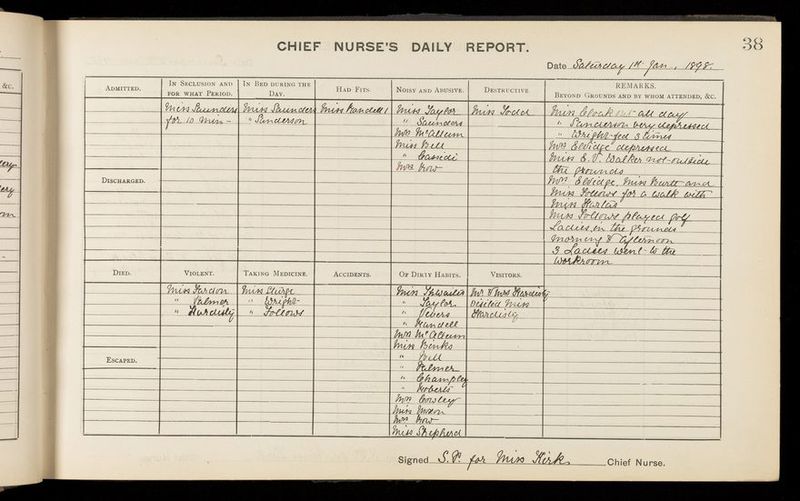 38
CHIEF NURSE'S DAILY REPORT.
Date Saturday 1st Jan, 1898.
&c.
ADMITTED.
IN SECLUSION AND FOR WHAT PERIOD.
IN BED DURING THE DAY.
HAD FITS.
NOISY AND ABUSIVE.
DESTRUCTIVE.
REMARKS.
BEYOND GROUNDS AND BY WHOM ATTENDED, &C.
Miss Saunders
for 10 min -
Miss Saunders
" Sanderson
Miss Rundell
Miss Taylor
" Saunders
Mrs McCallum
Miss Bell
Mrs How
Miss Todd
Miss Cloak all day
" Sanderson very depressed
" Wright fed 3 times
Mrs Elvidge depressed
Miss E.V. Walker not outside
the grounds
Mrs Elvidge, Miss and
Miss Follows for a walk with
Miss
Miss Follows played golf
Ladies in the grounds
morning & afternoon
3 Ladies went to the
workroom
DISCHARGED.
DIED.
VIOLENT.
TAKING MEDICINE.
ACCIDENTS.
OF DIRTY HABITS.
VISITORS.
Miss
" Palmer
" Hardisty
Miss
" Wright
" Follows
Miss Thwaites
" Taylor
" Vevers
" Rundell
Mrs McCallum
Miss Binks
" Bell
" Palmer
" Champley
" Roberts
Mrs
Miss Nixon
Mrs How
Miss Shepherd
Mr & Mrs Hardisty
visited Miss
Hardisty
ESCAPED.
Signed S.P. for Miss Kirk, Chief Nurse.